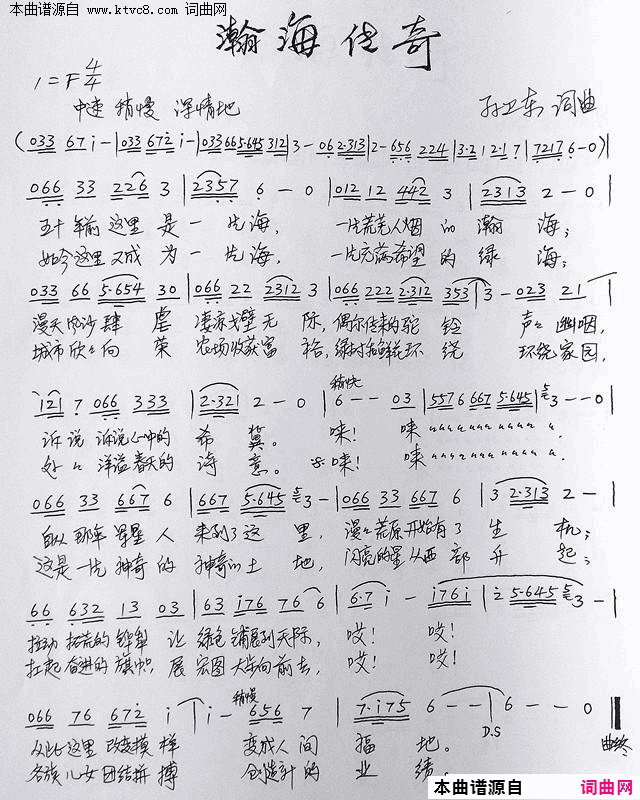 本曲谱源自
www.ktvc8.com 词曲网
瀚海传奇
1=F 4/4
中速 稍慢 深情地
孙卫东 词曲
(033 67 i-|033 672 i-|033 665·645 312|3-062·313|2-656 224|3·2 12·17|7217 6-0)|
066 33 226 3|2357 6-0|012 12 442 3|2313 2-0|
五十年前这里是一片海, 一片荒芜人烟的瀚海;
如今这里又成为一片海, 一片充满希望的绿海;
033 66 5·654 30|066 22 2312 3|066 222 2·312 353|3-023 21|
漫天风沙肆虐 凄凉戈壁无际,偶尔传来的驼铃 声々幽咽,
城市欣々向荣 农场收获富裕,绿树和鲜花环绕 环绕家园,
i2i 7 066 333|2·321 2-0|稍快 6--03|5576 667 5·645|3--0|
诉说 诉说心中的希冀。 唻! 唻
处々洋溢春天的诗意。 唻! 唻
066 33 667 6|667 5·645 3-|066 33 667 6|3 2·313 2-|
自从那年星星人来到了这里, 漫々荒原开始有了生机;
这是一片神奇的神奇的土地, 闪亮的星从西部升起;
66 632 13 03|63 i76 76 6|6·7 i-|i76i|2 5·645 3-|
拉动拓荒的铧犁 让绿色铺展到天际, 哎! 哎!
扛起奋进的旗帜, 展宏图大步向前去, 哎! 哎!
稍慢
066 76 672 i|i-656 7|7·i75 6--|6--0|
D.S
曲终
从此这里改变模样 变成人间福地。
各族儿女团结拼搏 创造新的业绩。
本曲谱源自 词曲网